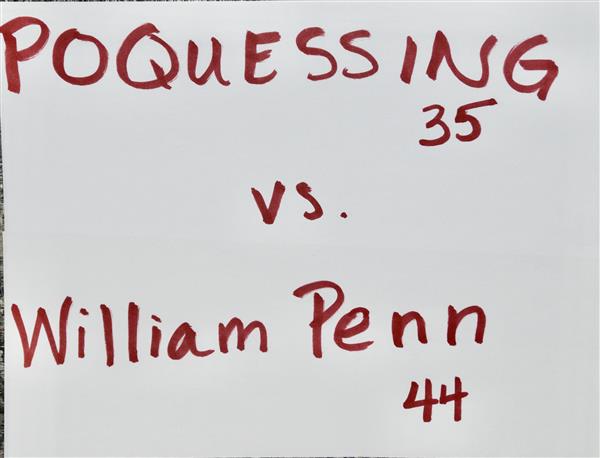 POQUESSING
35
vs.
William Penn
44